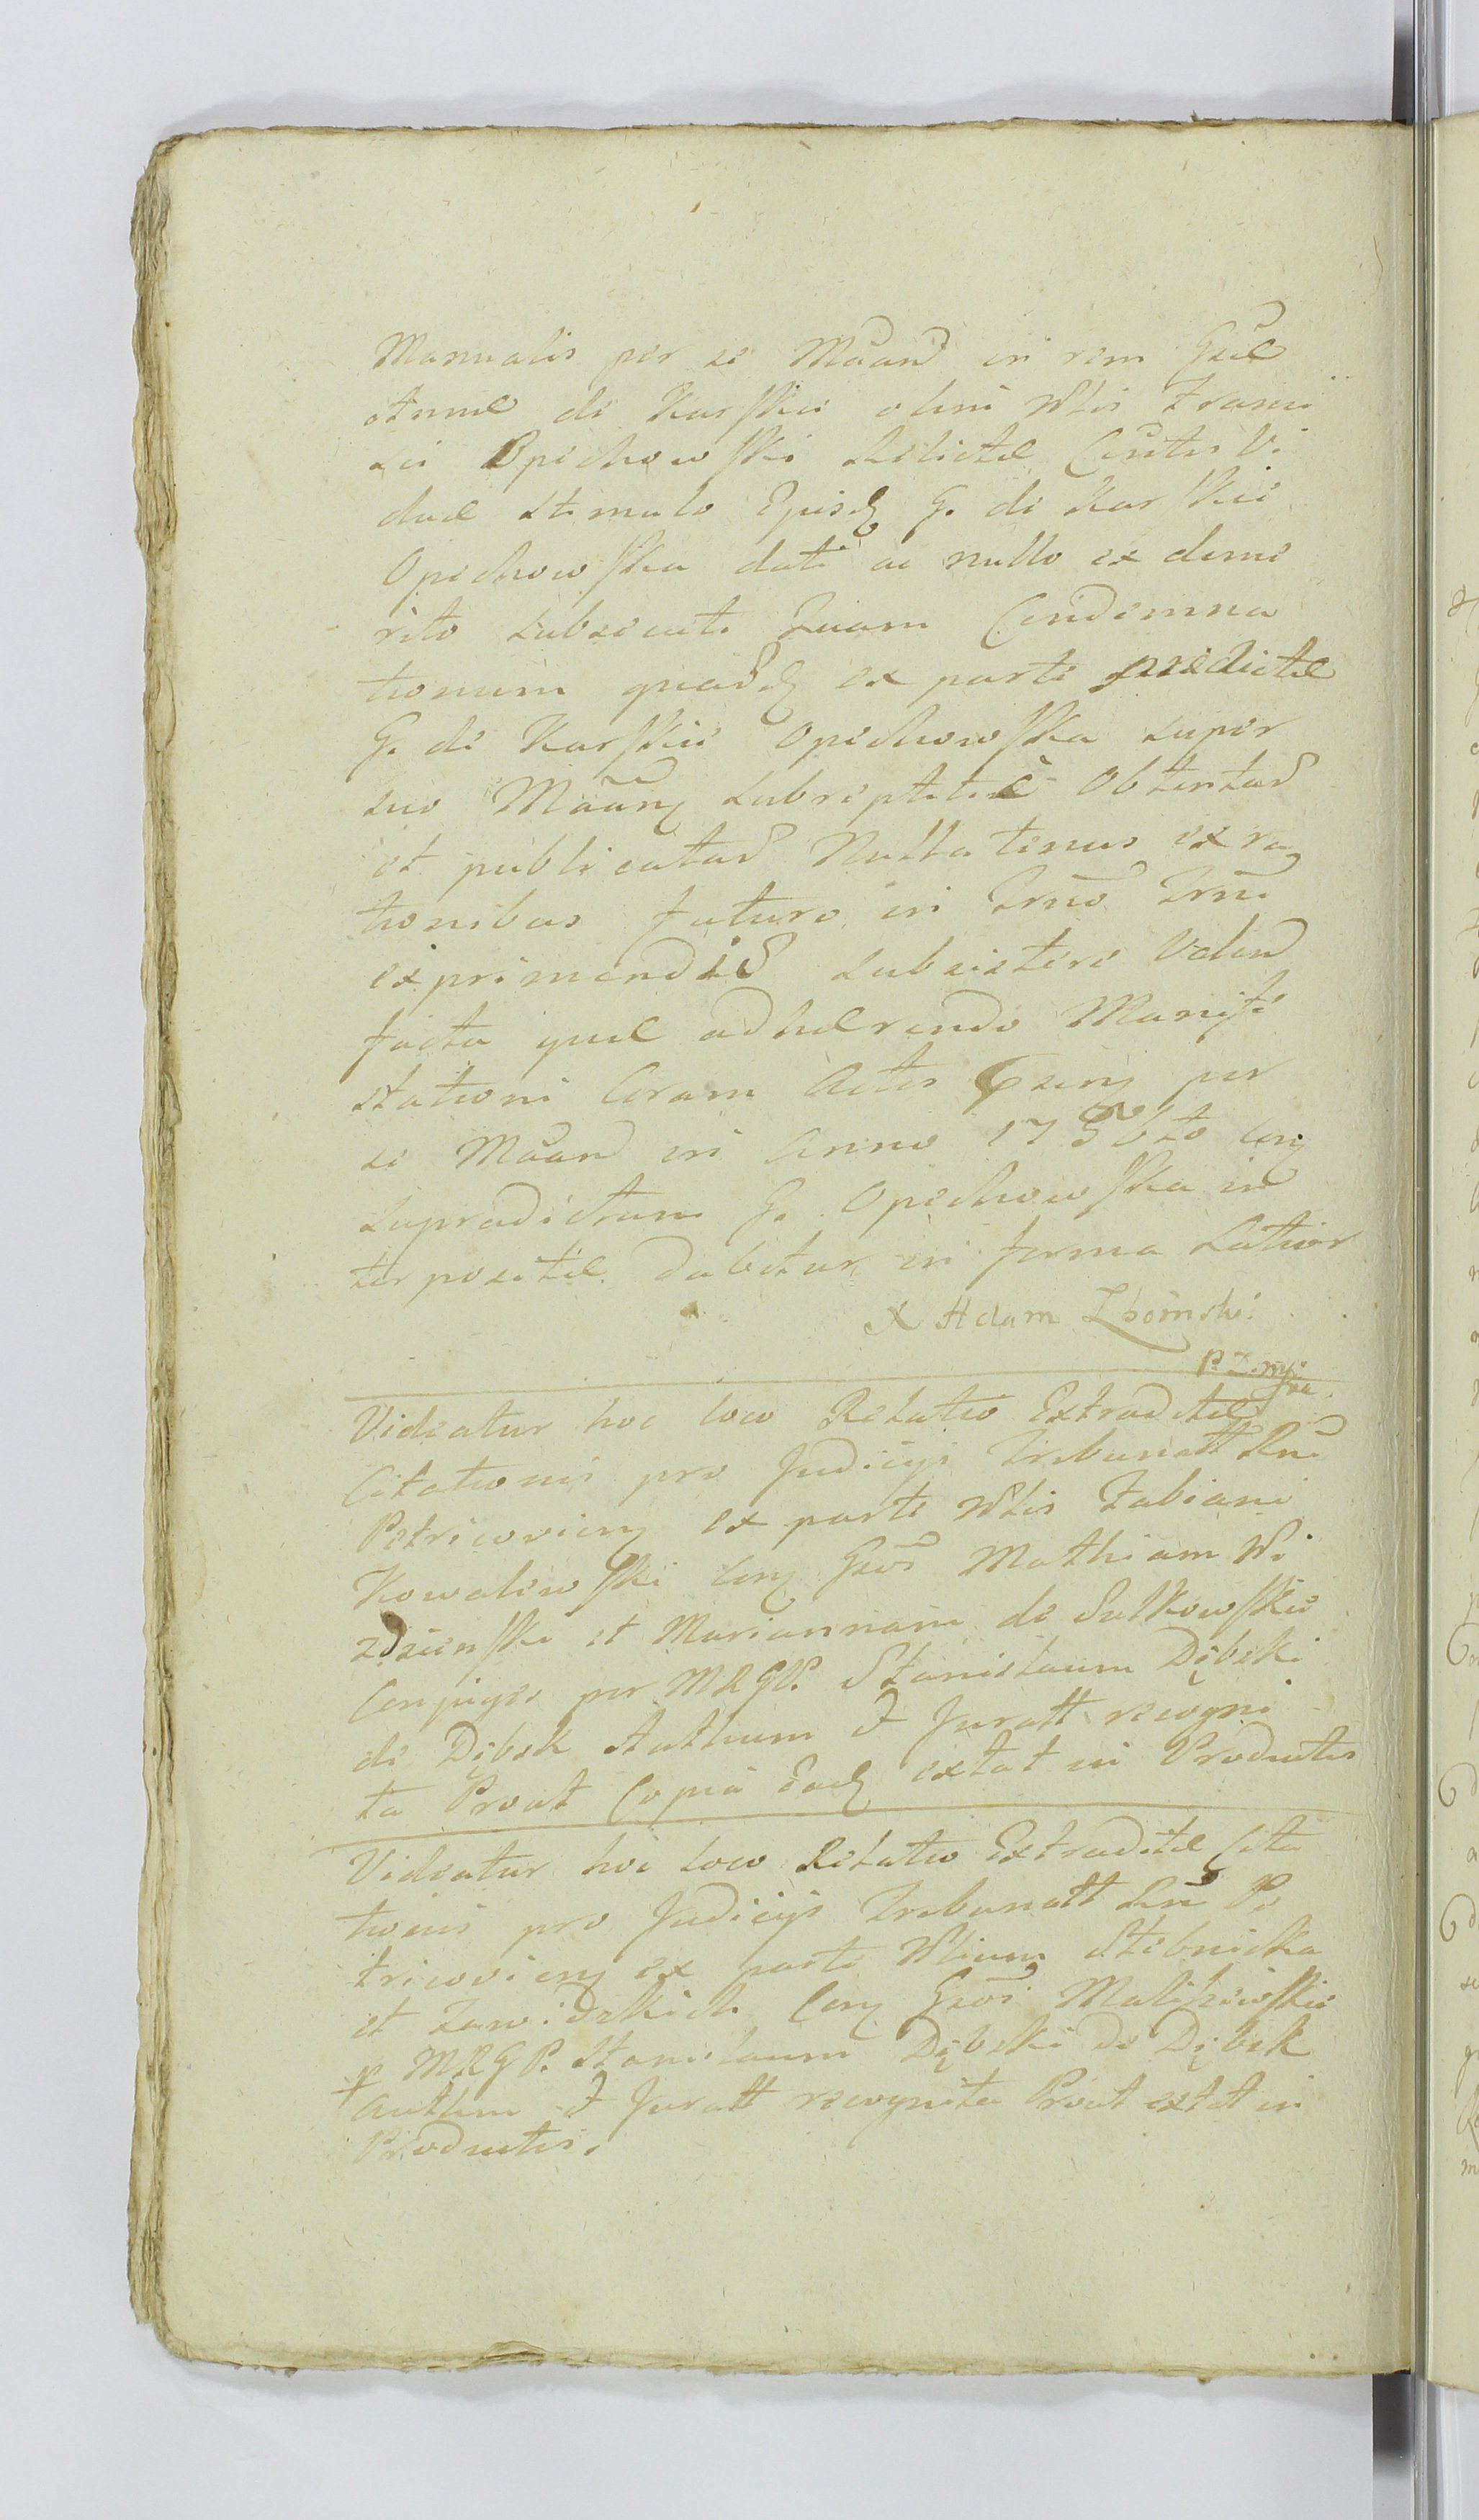 Manualis per se Maand in rem Gsae
Annae de Karskie olim Mtis Franci
sci Opechowski Relictae Csortis Vi
duae stimulo Ejusq G. de Karskie
Opechowska dati ac nullo ex deme
rito subsecuti suam Condemna
tionum quasd ex parte praedictae
G. de Karskie Opechowska super
suo Maanq subreptitiè Obtentas
et publicatas Nullatenus ex ra
tionibus futuro in Trno Trni
exprimendis subsistere Valen
facta quae adhaerendo Manife
stationi Coram Actis per
se Maand in Anno 17 con
supradictam G. Opechowska in
terpositae dabitur in forma Latior
X Adam Zboinski
Videatur hoc loco Relatio Extraditae
Citationis pro Judicijs Tribunatt Rni
Petricovien ex parte Mtis Fabiani
Kowalewski con Gsos Mathiam Wi
dzienski et Mariannam de Sulkowskie
Conjuges per MRGP. Stanislaum Dębski
de Dębsk Authum I Juratt recogni
ta Prout Copia Ead extat in Productis
Videatur hoc loco Relatio Extraditae Cita
tionis pro Judicijs Tribunatt Rni Pe
tricovien ex parte Mtium Stebnicka
et Zawidzkich Con Gsos Maliszewskie
p MRGP. Stanislaum Dębski de Dębsk
Authum I Juratt recognita Prout extat in
Productis.